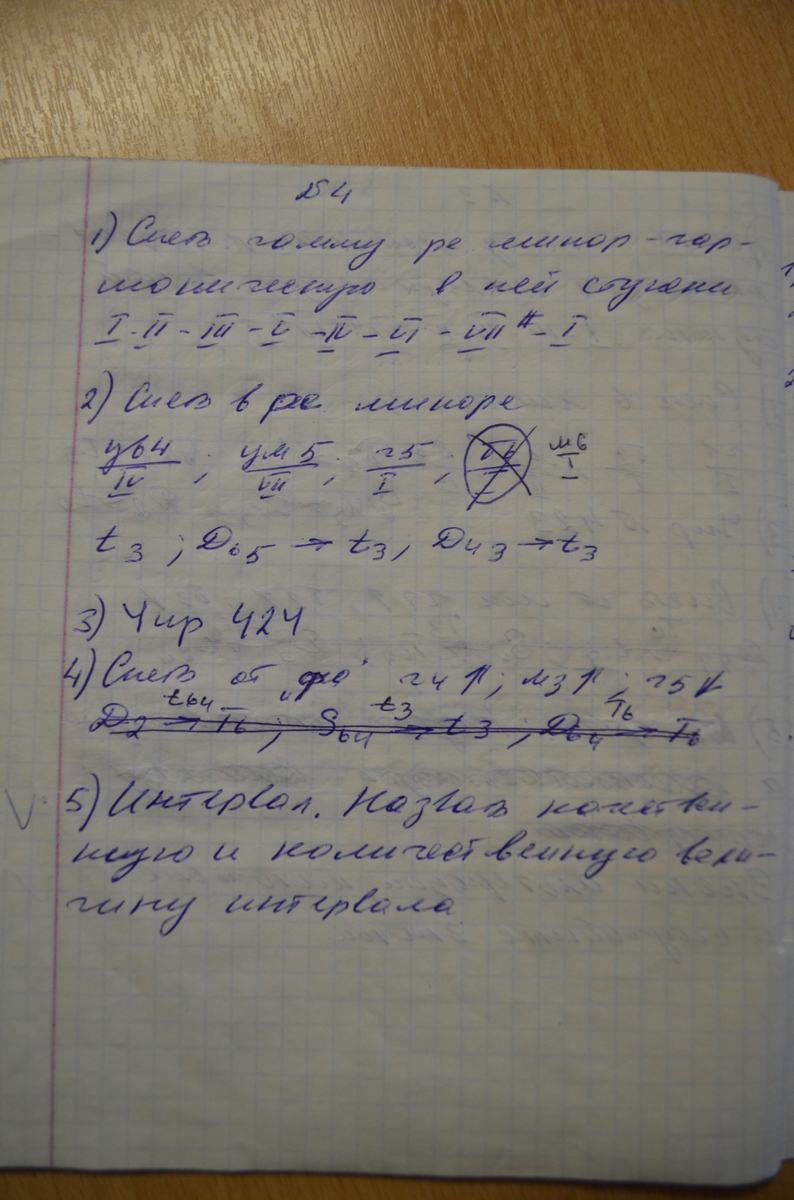 №4
1) Спеть гамму ре минор-гар-
моническую в ней ступени
I-II-III-V-IV-VI-VII#-I
2) Спеть в фа миноре
ув4/IV ; ум5/VII ; ч5/I ; м6/I
t3 ; D65 → t3, D43 → t3
3) Чир 424
4) Спеть от "фа" ч4↑; м3↑; ч5↓
t64 t3 T6
D2 → T6 ; S64 → t3 ; D64 → T6
5) Интервал. Назвать качествен-
ную и количественную вели-
чину интервала